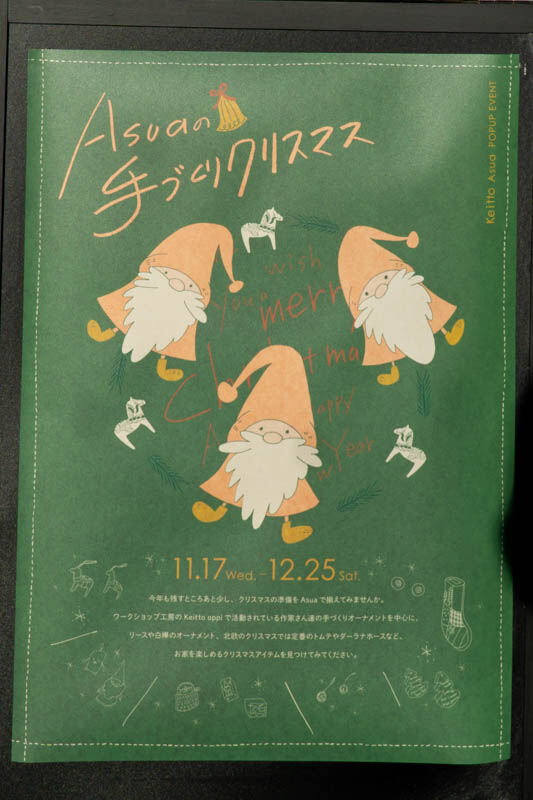 Asuaの
手づくりクリスマス
Keitto Asua POPUP EVENT
wish
you a
merr
tma
appy
Year
11.17 Wed. – 12.25 Sat.
今年も残すところあと少し、クリスマスの準備を Asua で揃えてみませんか。
ワークショップ工房の Keitto oppi で活動されている作家さん達の手づくりオーナメントを中心に、
リースや白樺のオーナメント、北欧のクリスマスでは定番のトムテやダーラナホースなど、
お家を楽しめるクリスマスアイテムを見つけてみてください。